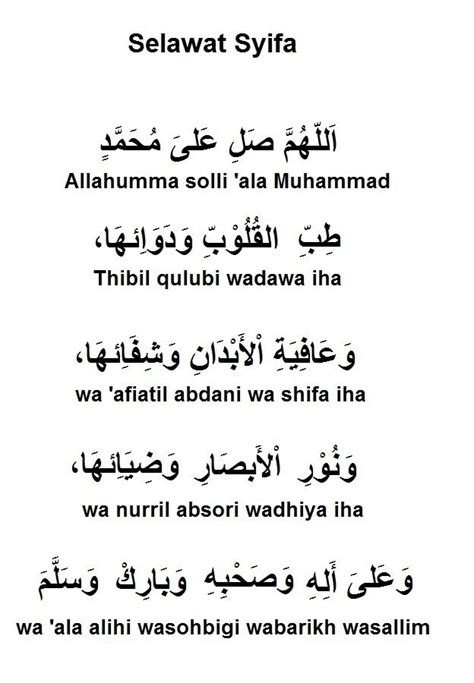 Selawat Syifa
اَللّهُمَّ صَلِ عَلىَ مُحَمَّدٍ
Allahumma solli 'ala Muhammad
طِبِّ القُلُوْبِّ وَدَوَاِئهَا،
Thibil qulubi wadawa iha
وَعَافِيَةِ اْلأَبْدَانِ وَشِفَائِهَا،
wa 'afiatil abdani wa shifa iha
وَنُوْرِ اْلأَبصَارِ وَضِيَائِهَا،
wa nurril absori wadhiya iha
وَعَلىَ أَلِهِ وَصَحْبِهِ وَبَارِكْ وَسَلَّمَ
wa 'ala alihi wasohbigi wabarikh wasallim